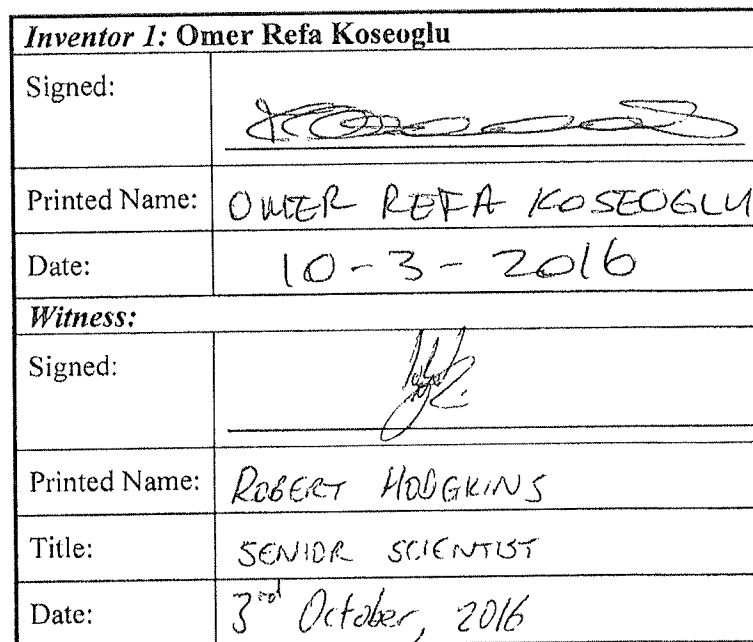 Inventor 1: Omer Refa Koseoglu
Signed:
Printed Name: OMER REFA KOSEOGLU
Date: 10-3-2016
Witness:
Signed:
Printed Name: ROBERT HODGKINS
Title: SENIOR SCIENTIST
Date: 3rd October, 2016